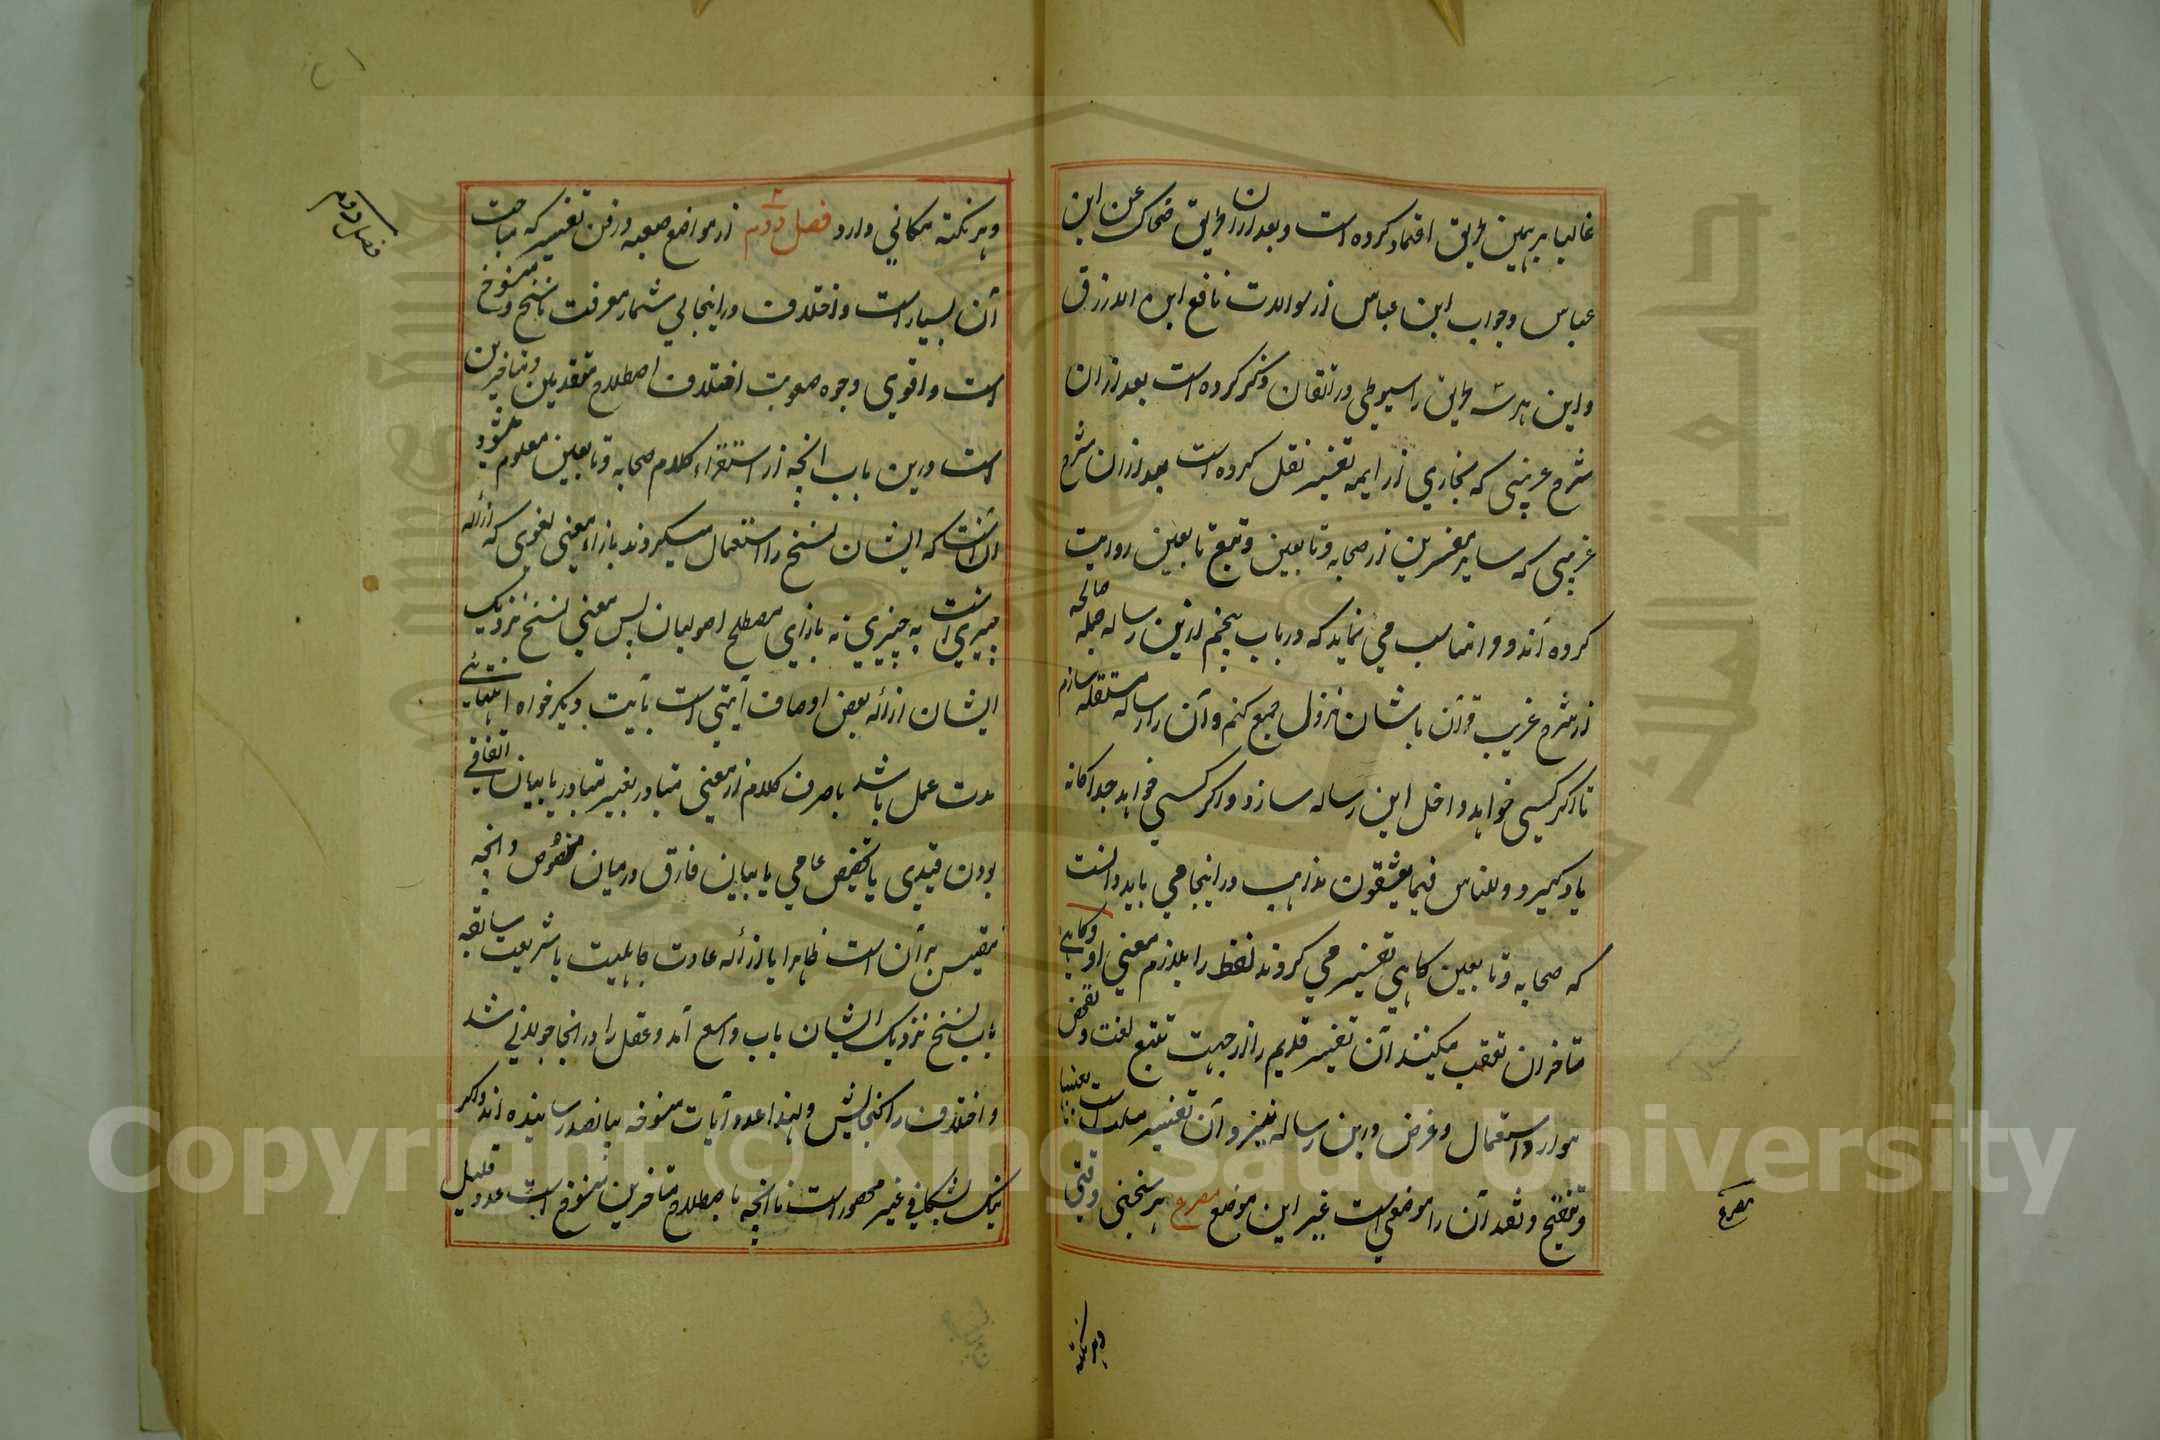 غالبا بر همین طریق اعتماد کرده است و بعد ازان طریق ضحاک عن ابن
عباس و جواب ابن عباس از سوالات نافع ابن الازرق
و این هر سه طریق را سیوطی در اتقان ذکر کرده است بعد ازان
شرح غریبی که بخاری از ایمه تفسیر نقل کرده است بعد ازان شرح
غریبی که سایر مفسرین از صحابه و تابعین و تبع تابعین روایت
کرده اند و مناسب می نماید که در باب پنجم ازین رساله جمله صالحه
از شرح غریب قرآن با شان نزول جمع کنم و آن را رساله مستقله سازم
تا اگر کسی خواهد داخل این رساله سازد و اگر کسی خواهد جداگانه
یاد گیرد و للناس فیما یعشقون مذاهب در اینجا می باید دانست
که صحابه و تابعین گاهی تفسیر می کردند لفظ را بلازم معنی او و گاهی
متاخران تعقب میکنند آن تفسیر قدیم را از جهت تتبع لغت و تفحص
موارد استعمال و غرض درین رساله نیز و آن تفسیر سلف است بعینها
و تنقیح و نقد آن را موضعی است غیر این موضع مصرع هر سخنی وقتی
مصرع
و هر نکته
و هر نکته مکانی دارد فصل دویم از مواضع صعبه در فن تفسیر که مباحث
آن بسیار است و اختلاف در اینجا بی شمار معرفت ناسخ و منسوخ
است و اقوی وجوه صعوبت اختلاف اصطلاح متقدمین و متاخرین
است درین باب انچه از استقراء کلام صحابه و تابعین معلوم میشود
آن است که ایشان نسخ را استعمال میکردند بازاء معنی لغوی که ازاله
چیزی است به چیزی نه بازای مصطلح اصولیان پس معنی نسخ نزدیک
ایشان ازاله بعض اوصاف آیتی است بآیت دیگر خواه انتهای
مدت عمل باشد یا صرف کلام از معنی متبادر بغیر متبادر یا بیان اتفاقی
بودن قیدی یا تخصیص عامی یا بیان فارق درمیان منصوص و انچه
مقیس بر آن است ظاهرا یا ازاله عادت جاهلیت یا شریعت سابقه
باب نسخ نزدیک ایشان باب واسع آمد و عقل را در انجا جولانی شد
و اختلاف را گنجایش و لهذا عدد آیات منسوخه بپانصد رسانیده اند و اگر
نیک بشکافی غیر محصور است اما انچه باصطلاح متاخرین منسوخ است عدد قلیل
فصل دویم
Copyright © King Saud University